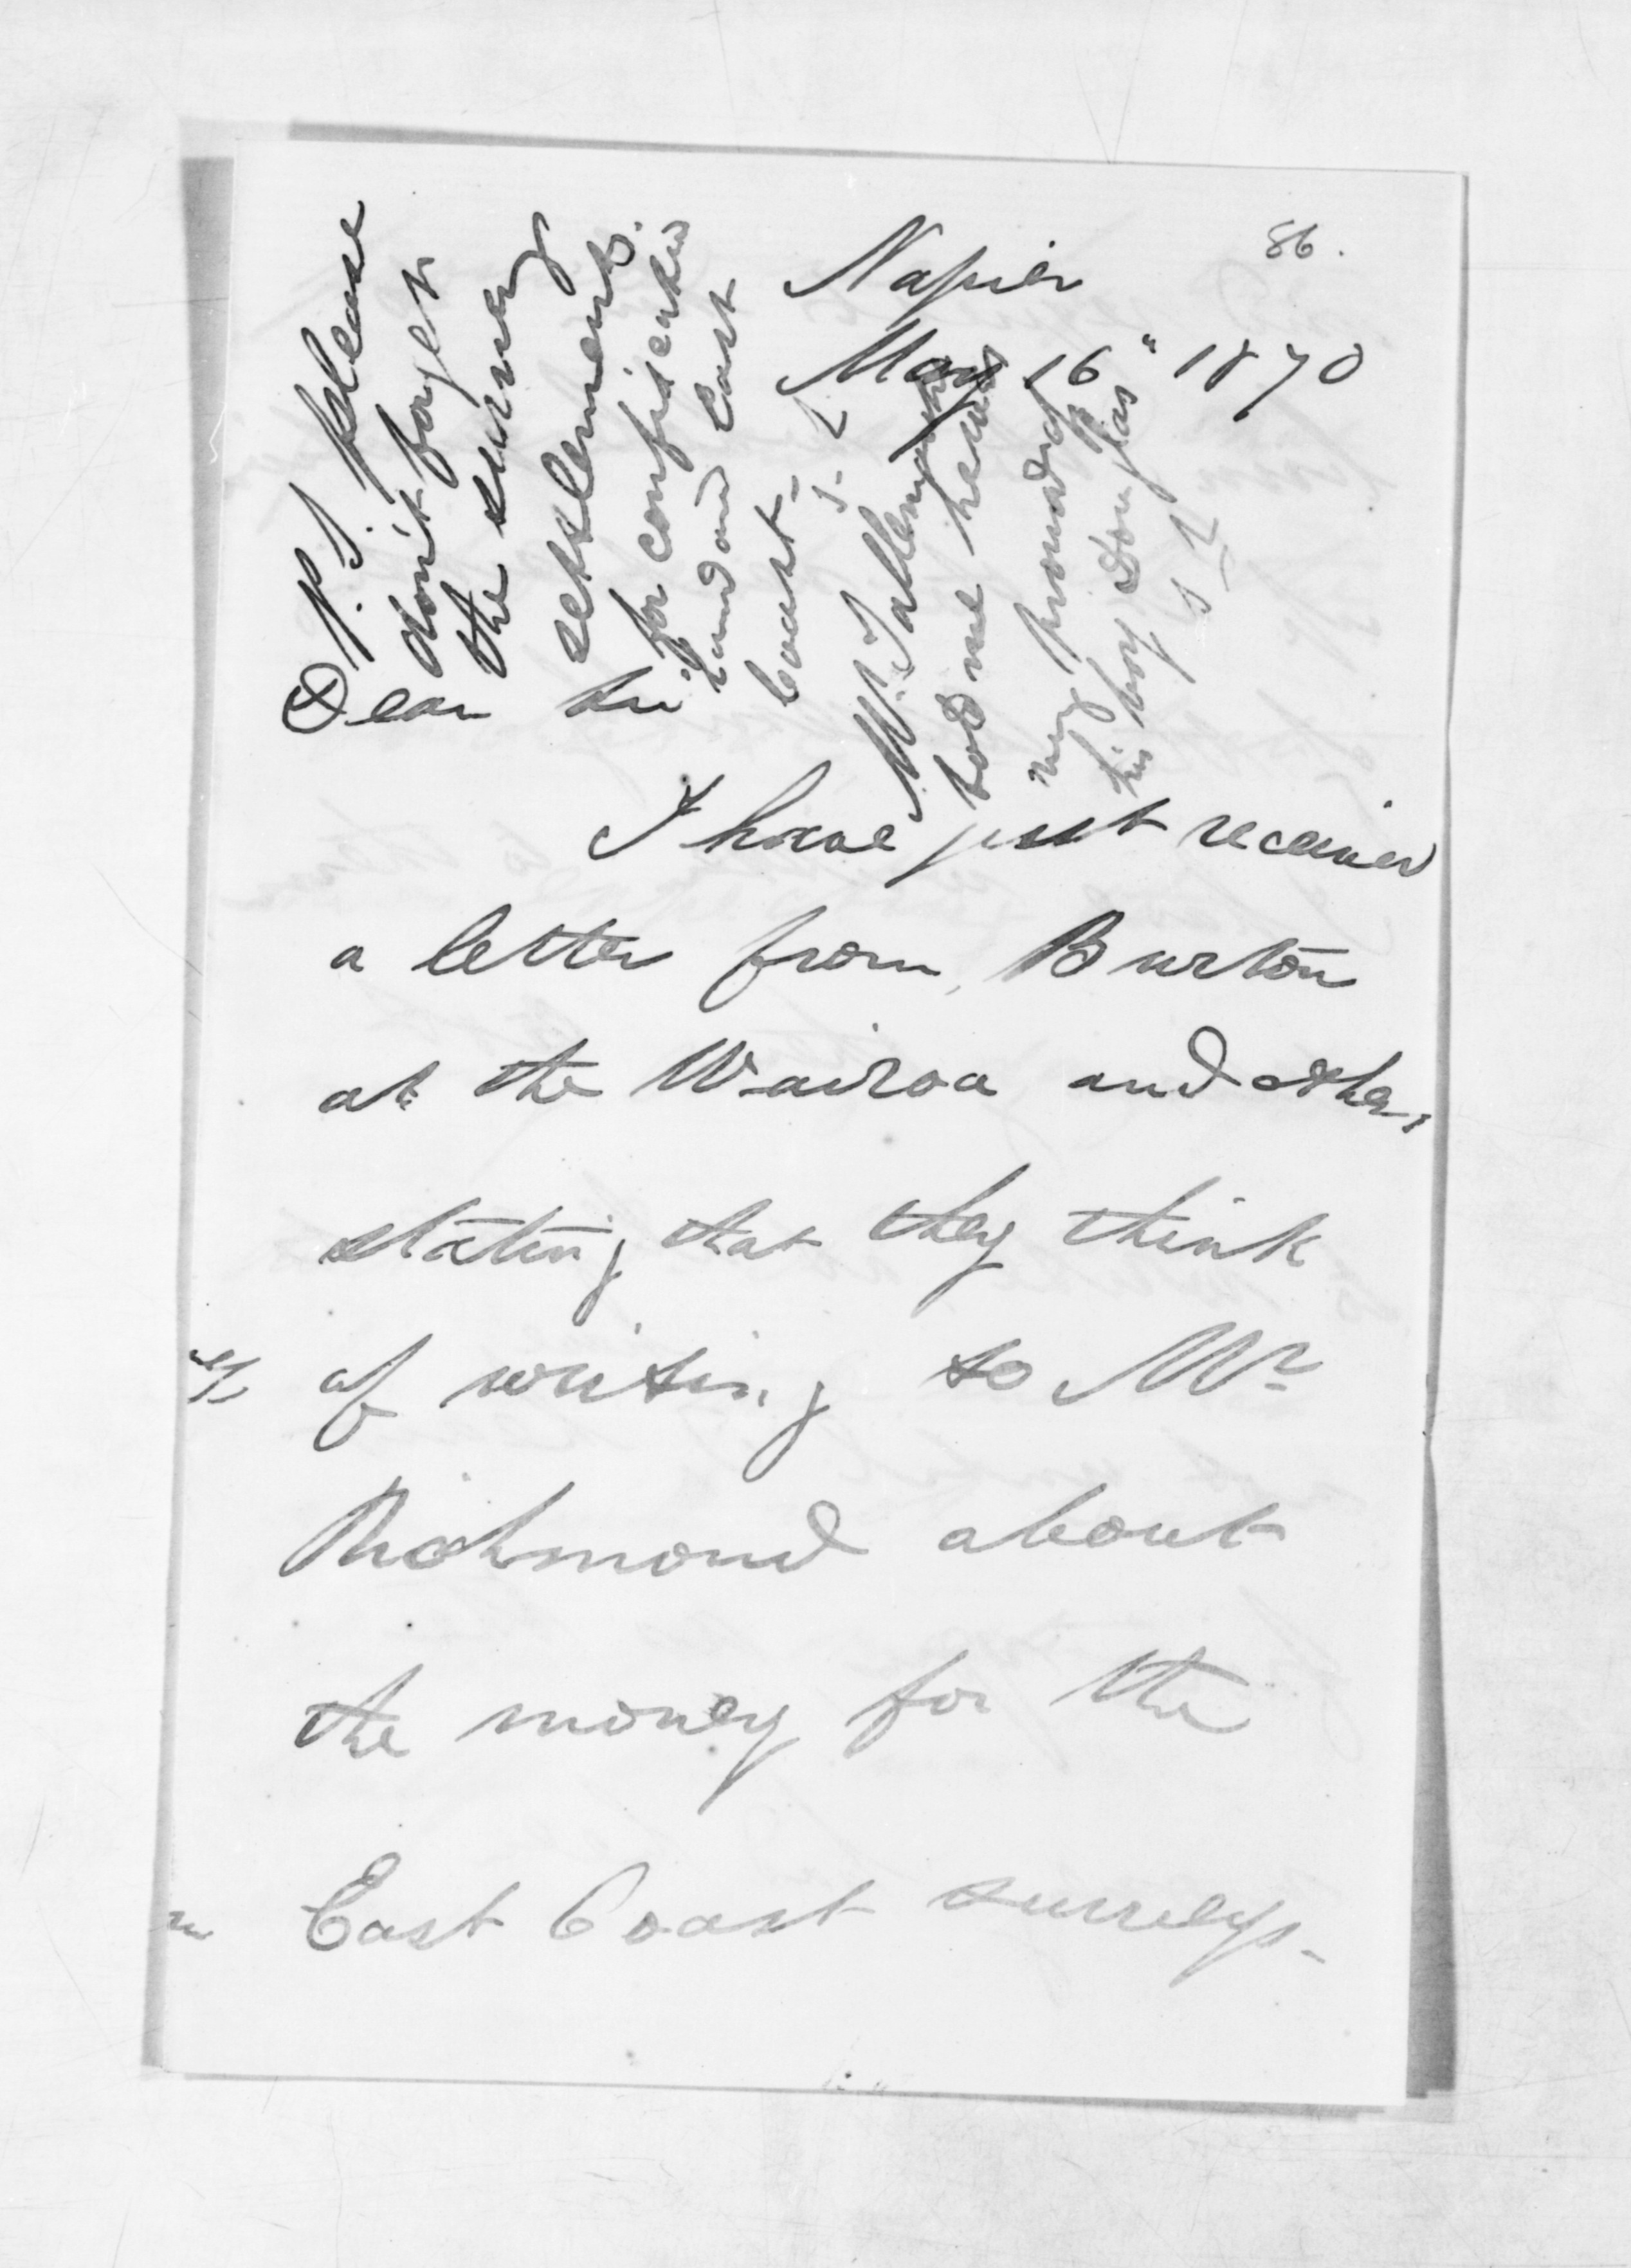 86.
Napier
May 16" 1870
Dear Sir
I have just received
a letter from Burton
at the Wairoa and others
stating that they think
of writing to Mr
Richmond about
the money for the
East Coast surveys.
P.S. please
don't forget
the survey
settlement
for confiscated
land and East
Coast -
S. L
Mr. Tallemache
told me he was
providing
his boy Douglas
S L